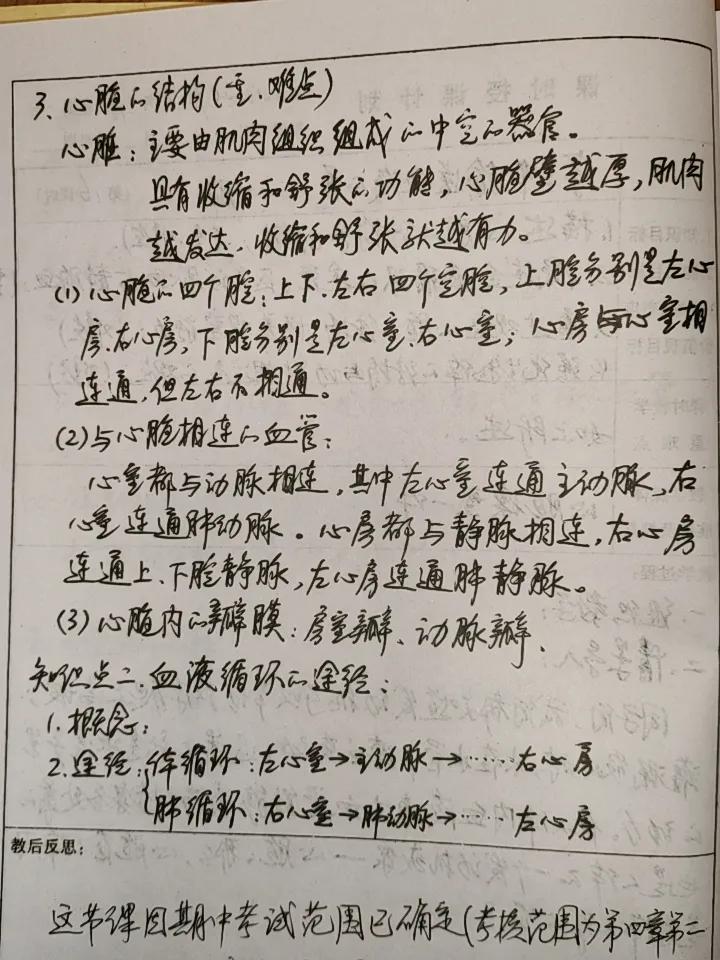 3、心脏的结构(重、难点)
心脏：主要由肌肉组织组成的中空的器官。
具有收缩和舒张的功能，心脏壁越厚，肌肉
越发达，收缩和舒张就越有力。
(1) 心脏的四个腔：上下、左右四个空腔，上腔分别是左心
房、右心房，下腔分别是左心室、右心室；心房与心室相
连通，但左右不相通。
(2) 与心脏相连的血管：
心室都与动脉相连，其中左心室连通主动脉，右
心室连通肺动脉。心房都与静脉相连，右心房
连通上、下腔静脉，左心房连通肺静脉。
(3) 心脏内的瓣膜：房室瓣、动脉瓣、
知识点二、血液循环的途径：
1、概念：
2、途径：体循环：左心室→主动脉→……右心房
肺循环：右心室→肺动脉→……左心房
教后反思：
这节课因期中考试范围已确定(考核范围为第四章第二